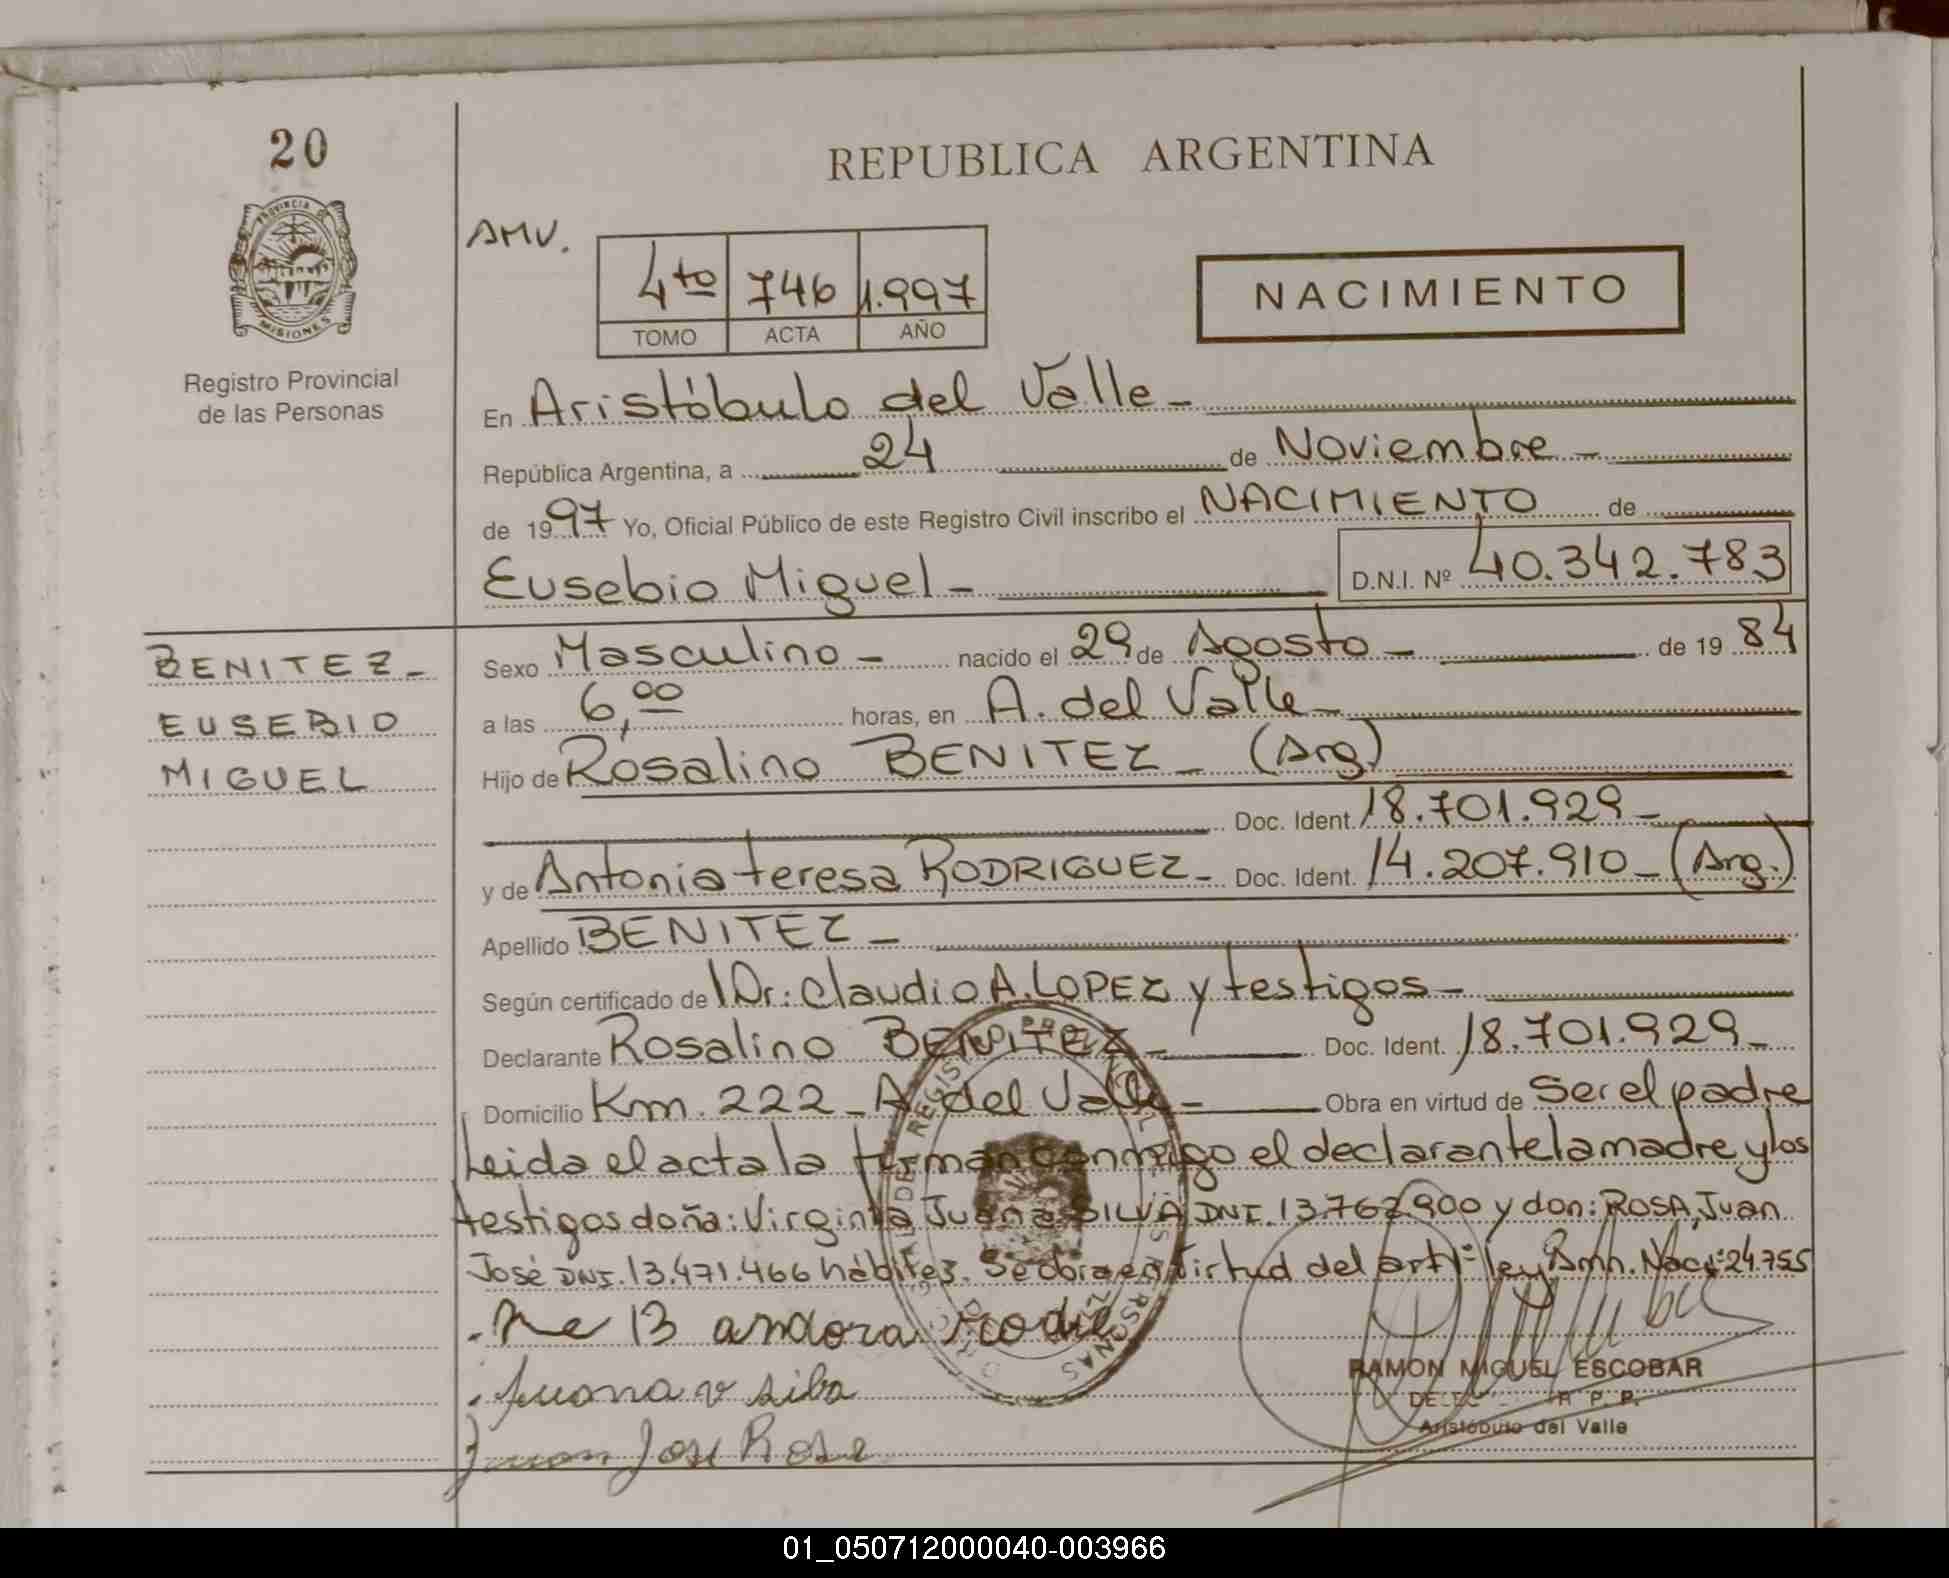 20
REPUBLICA ARGENTINA
PROVINCIA DE
MISIONES
Registro Provincial
de las Personas
AMV.
4to 746 1.997
TOMO ACTA AÑO
NACIMIENTO
En Aristóbulo del Valle_
República Argentina, a 24 de Noviembre_
de 1997 Yo, Oficial Público de este Registro Civil inscribo el NACIMIENTO de
Eusebio Miguel_ D.N.I. Nº 40.342.783
BENITEZ_
EUSEBIO
MIGUEL
Sexo Masculino_ nacido el 29 de Agosto_ de 1984
a las 6,00 horas, en A. del Valle_
Hijo de Rosalino BENITEZ_ (Arg)
Doc. Ident. 18.701.929_
y de Antonia teresa RODRIGUEZ_ Doc. Ident. 14.207.910_(Arg.)
Apellido BENITEZ_
Según certificado de Dr: Claudio A. LOPEZ y testigos_
Declarante Rosalino BENITEZ_ Doc. Ident. 18.701.929_
Domicilio Km. 222_A. del Valle_ Obra en virtud de Ser el padre
Leida el acta la firman conmigo el declarante la madre y los
testigos doña: Virginia Juana SILVA DNI. 13.762.900 y don: ROSA, Juan
José DNI. 13.471.466 hábiles. Se obra en virtud del art 1º ley Amn. Nac: 24.755
andora
Juana v silva
Juan Jose Rosa
RAMON MIGUEL ESCOBAR
R. P. P.
Aristóbulo del Valle
01_050712000040-003966